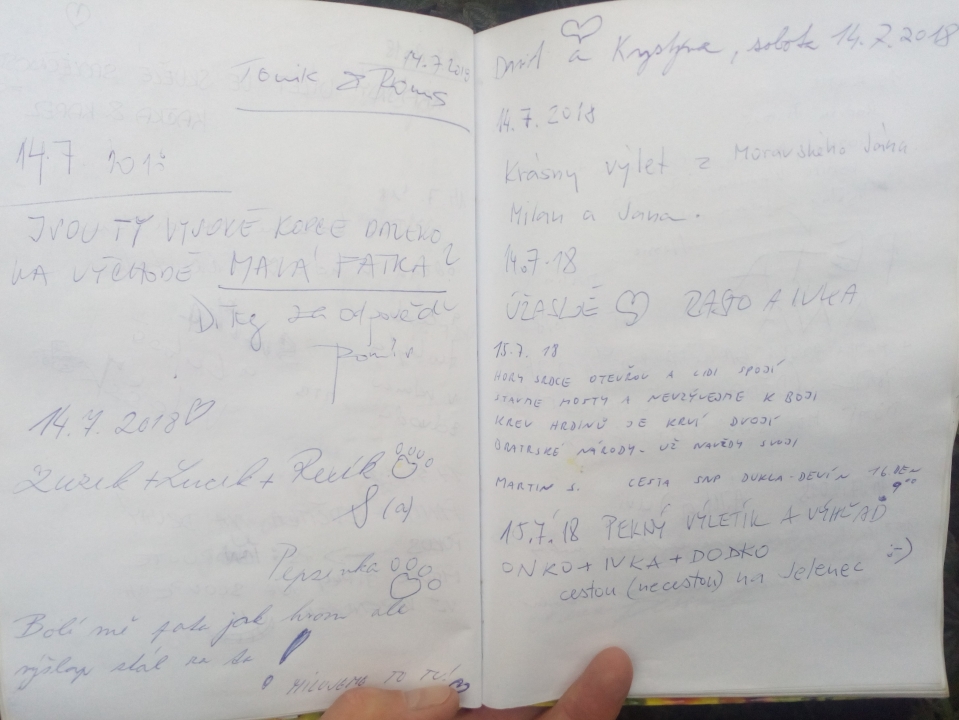 14.7.2018
Tomik a Romis
14.7 2018
JSOU TY VYSOKÉ KOPCE DALEKO
NA VÝCHODĚ MALÁ FATRA?
Díky za odpověď
14.7.2018
Zuzik + Lucik + Reik
S (a)
Pepsinka
Bolí mě pata jak hrom ale
výšlap stál za to
MILUJEME TO TU!
David a Krystyna, sobota 14.7.2018
14.7.2018
Krásny výlet z Moravského Jána
Milan a Jana.
14.7.18
ÚŽASNÉ RASŤO A IVKA
15.7.18
HORY SRDCE OTEVŘOU A LIDI SPOJÍ
STAVME MOSTY A NEVZÝVEJME K BOJI
KREV HRDINŮ JE KRVÍ DVOJÍ
BRATRSKÉ NÁRODY - UŽ NAVĚDY SVOJI
MARTIN S. CESTA SNP DUKLA-DEVÍN 16.DEN
9⁰⁰
15.7.'18 PEKNÝ VÝLETÍK A VÝHĽAD
ONKO + IVKA + DODKO
cestou (necestou) na Jelenec :-)